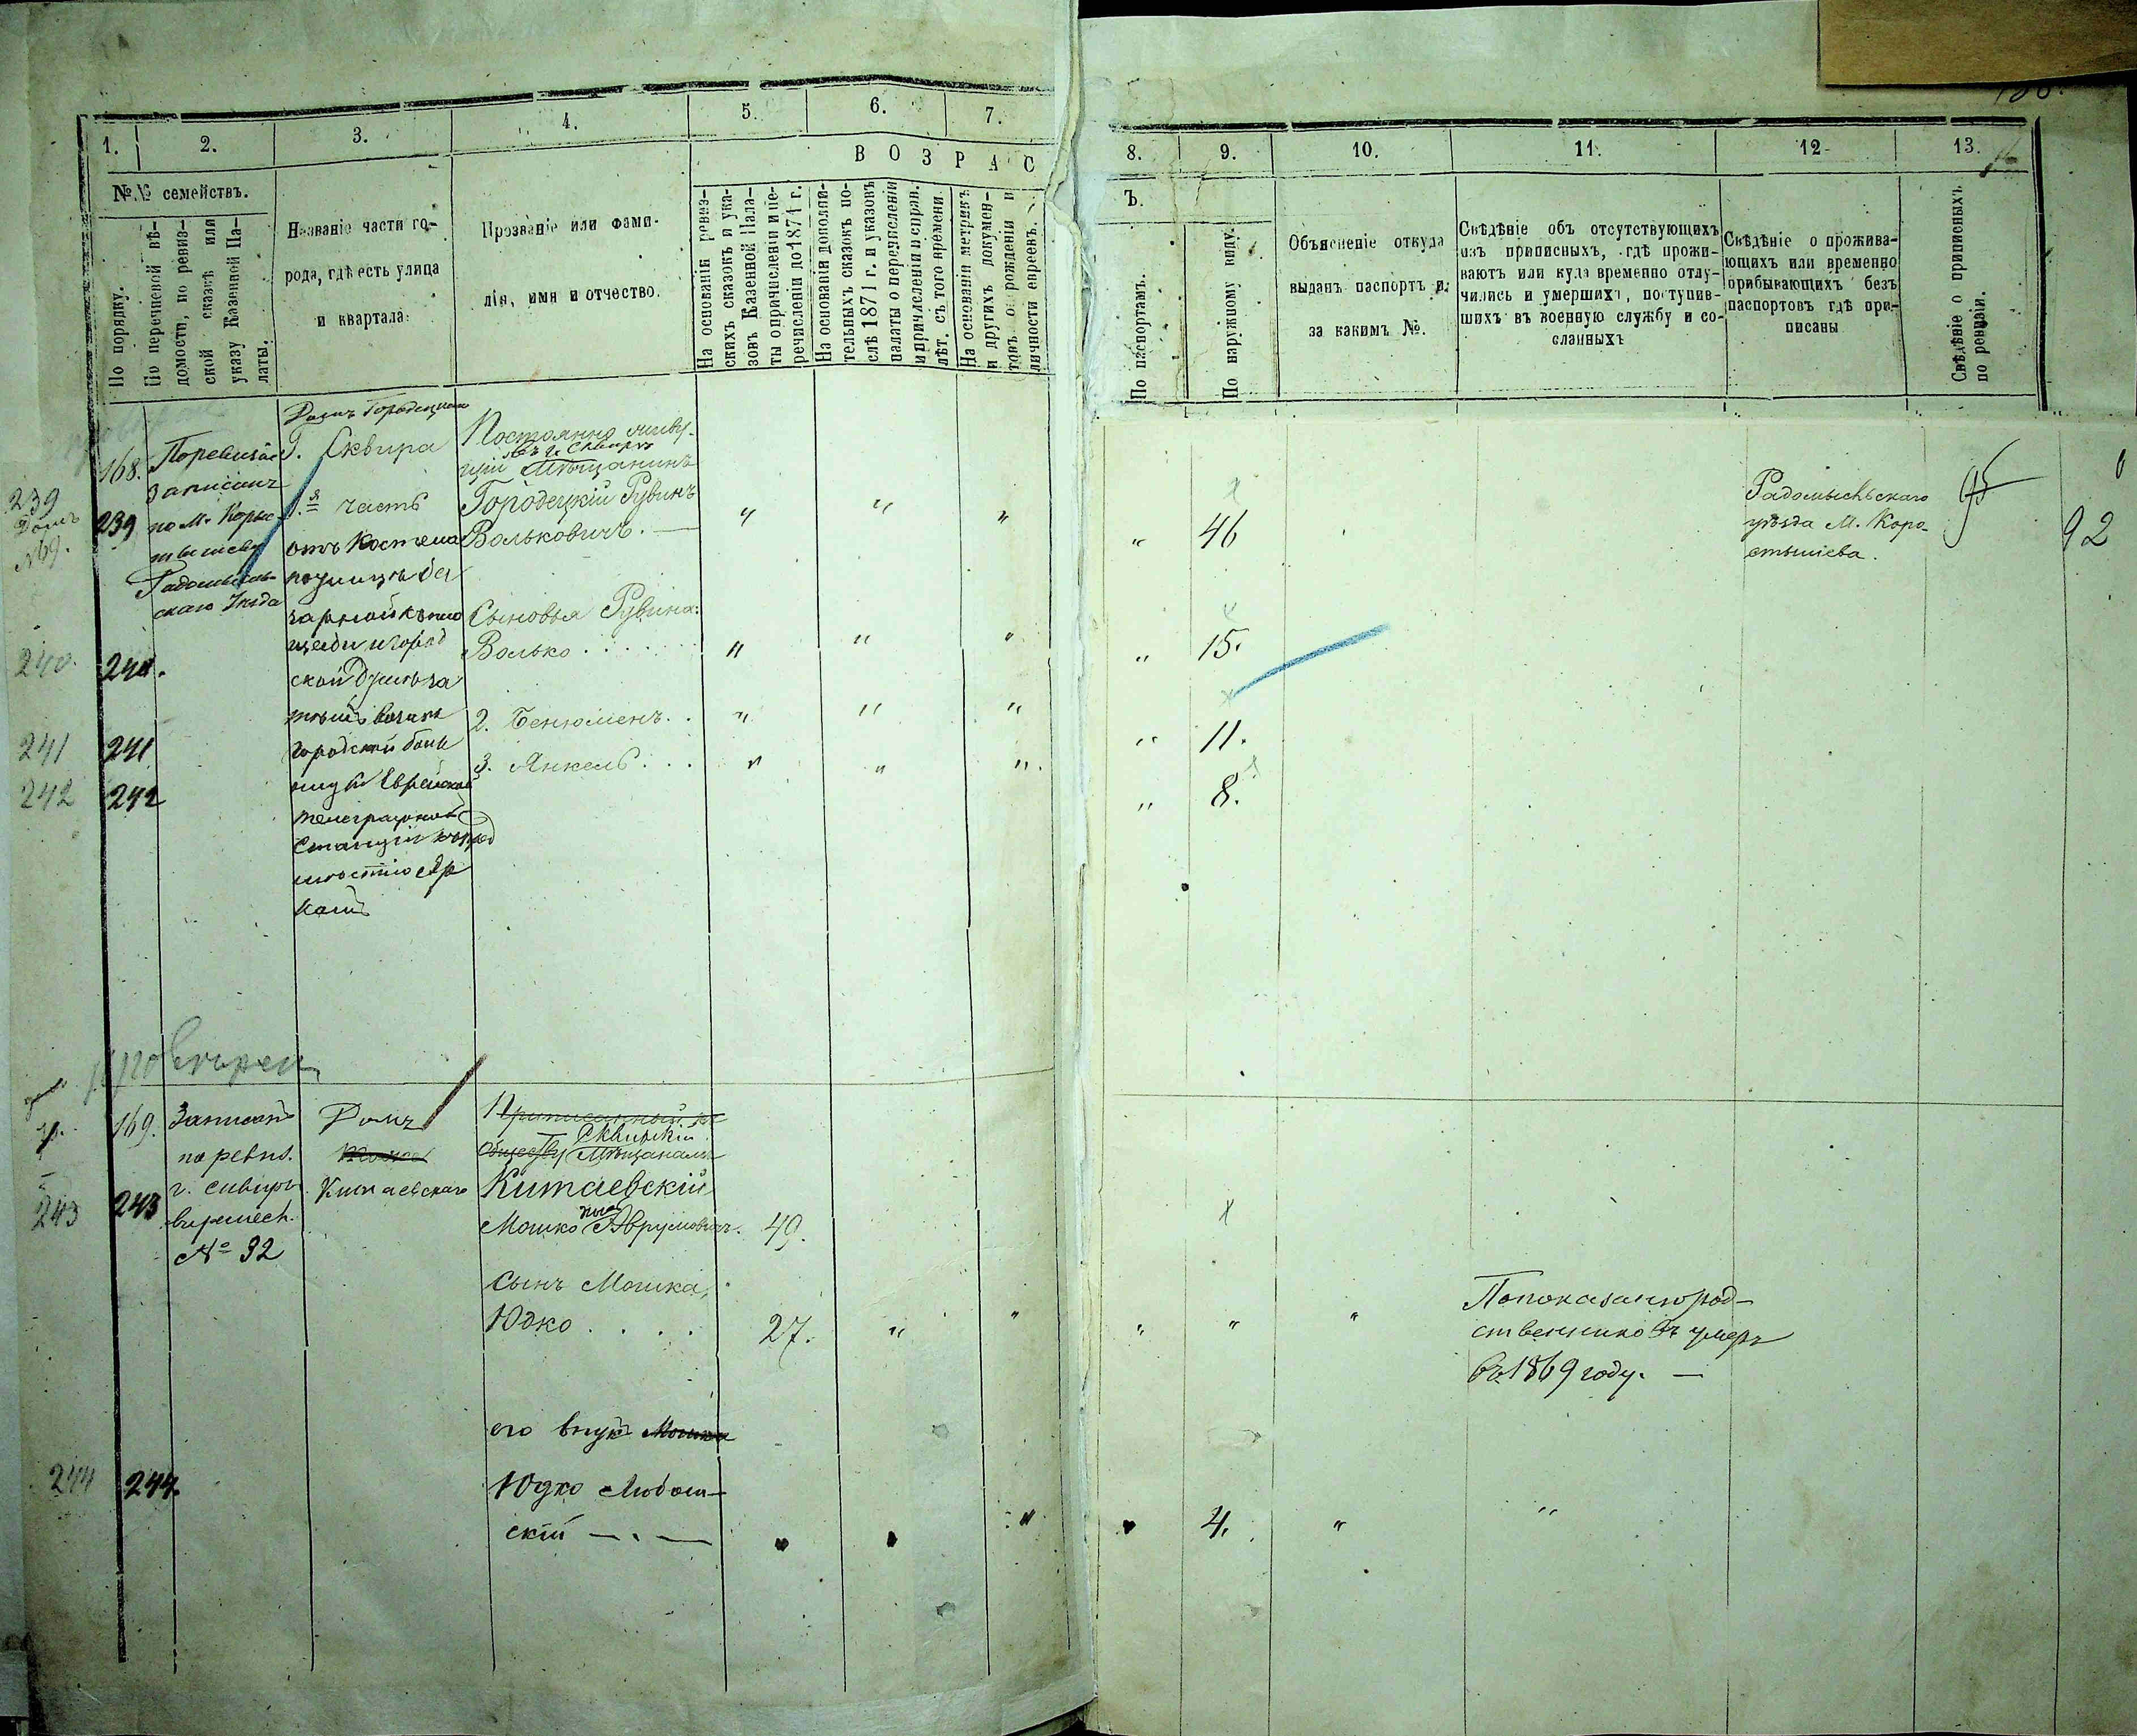 1.
2.
3.
4.
5.
6.
7.
В О З Р А С
№№ семействъ.
По порядку.
По перечневой вѣ-
домости, по ревиз-
ской сказкѣ или
указу Казенной Па-
латы.
Названіе части го-
рода, гдѣ есть улица
и квартала.
Прозваніе или фами-
лія, имя и отчество.
На основаніи ревиз-
скихъ сказокъ и ука-
зовъ Казенной Пала-
ты о причисленіи и пе-
речисленіи до 1871 г.
На основаніи дополни-
тельныхъ сказокъ по-
слѣ 1871 г. и указовъ
палаты о перечисленіи
и причисленіи и справ.
лѣт. съ того времени.
На основаніи метрикъ
и другихъ докумен-
товъ о рожденіи и
личности евреевъ.
8.
9.
10.
11.
12
13.
Ъ.
По паспортамъ.
По наружному виду.
Объясненіе откуда
выданъ паспортъ и
за какимъ №.
Свѣдѣніе объ отсутствующихъ
изъ приписныхъ, гдѣ прожи-
ваютъ или куда временно отлу-
чились и умершихъ, поступив-
шихъ въ военную службу и со-
сланныхъ
Свѣдѣніе о прожива-
ющихъ или временно
прибывающихъ безъ
паспортовъ гдѣ при-
писаны
Свѣдѣніе о приписныхъ
по ревизіи.
Домъ Городецкаго
168.
Поревизіи
записанъ
по М. Корос-
тышеву
Радомысль-
скаго Уѣзда
239
Домъ
№69.
239
Г. Сквира
1.я часть
отъ Костела
по улицѣ ба
зарной къ пло
щади и город
ской Думѣ за
тѣмъ возлѣ
городской
Еврейской
телеграфной
Станціи
Постоянно живу-
щій въ г. Сквирѣ
Мѣщанинъ
Городецкій Рувинъ
Вольковичъ. —
" " " " 46
Радомысльскаго
уѣзда М. Коро-
стышева.
95
92
Сыновья Рувина:
240. 240. Волько . . . . . " " " " 15.
241 241 2. Бенюменъ. . " " " " 11.
242 242 3. Янкель . . . " " " " 8.
провѣрен
169.
Записанъ
по ревиз.
г. Сквиры
№ 32
Домъ
Китаевскаго
Приписанный къ
обществу Сквирскій
Мѣщанамъ
243 243
Китаевскій
Мошко Аврумовичъ. 49.
сынъ Мошка,
Юдко . . . . 27. " " " " "
По показанію род-
ственниковъ умеръ
въ 1869 году. —
его внукъ Мошка
244 244.
Юдко Любом-
скій — . — " " " " 4. " "